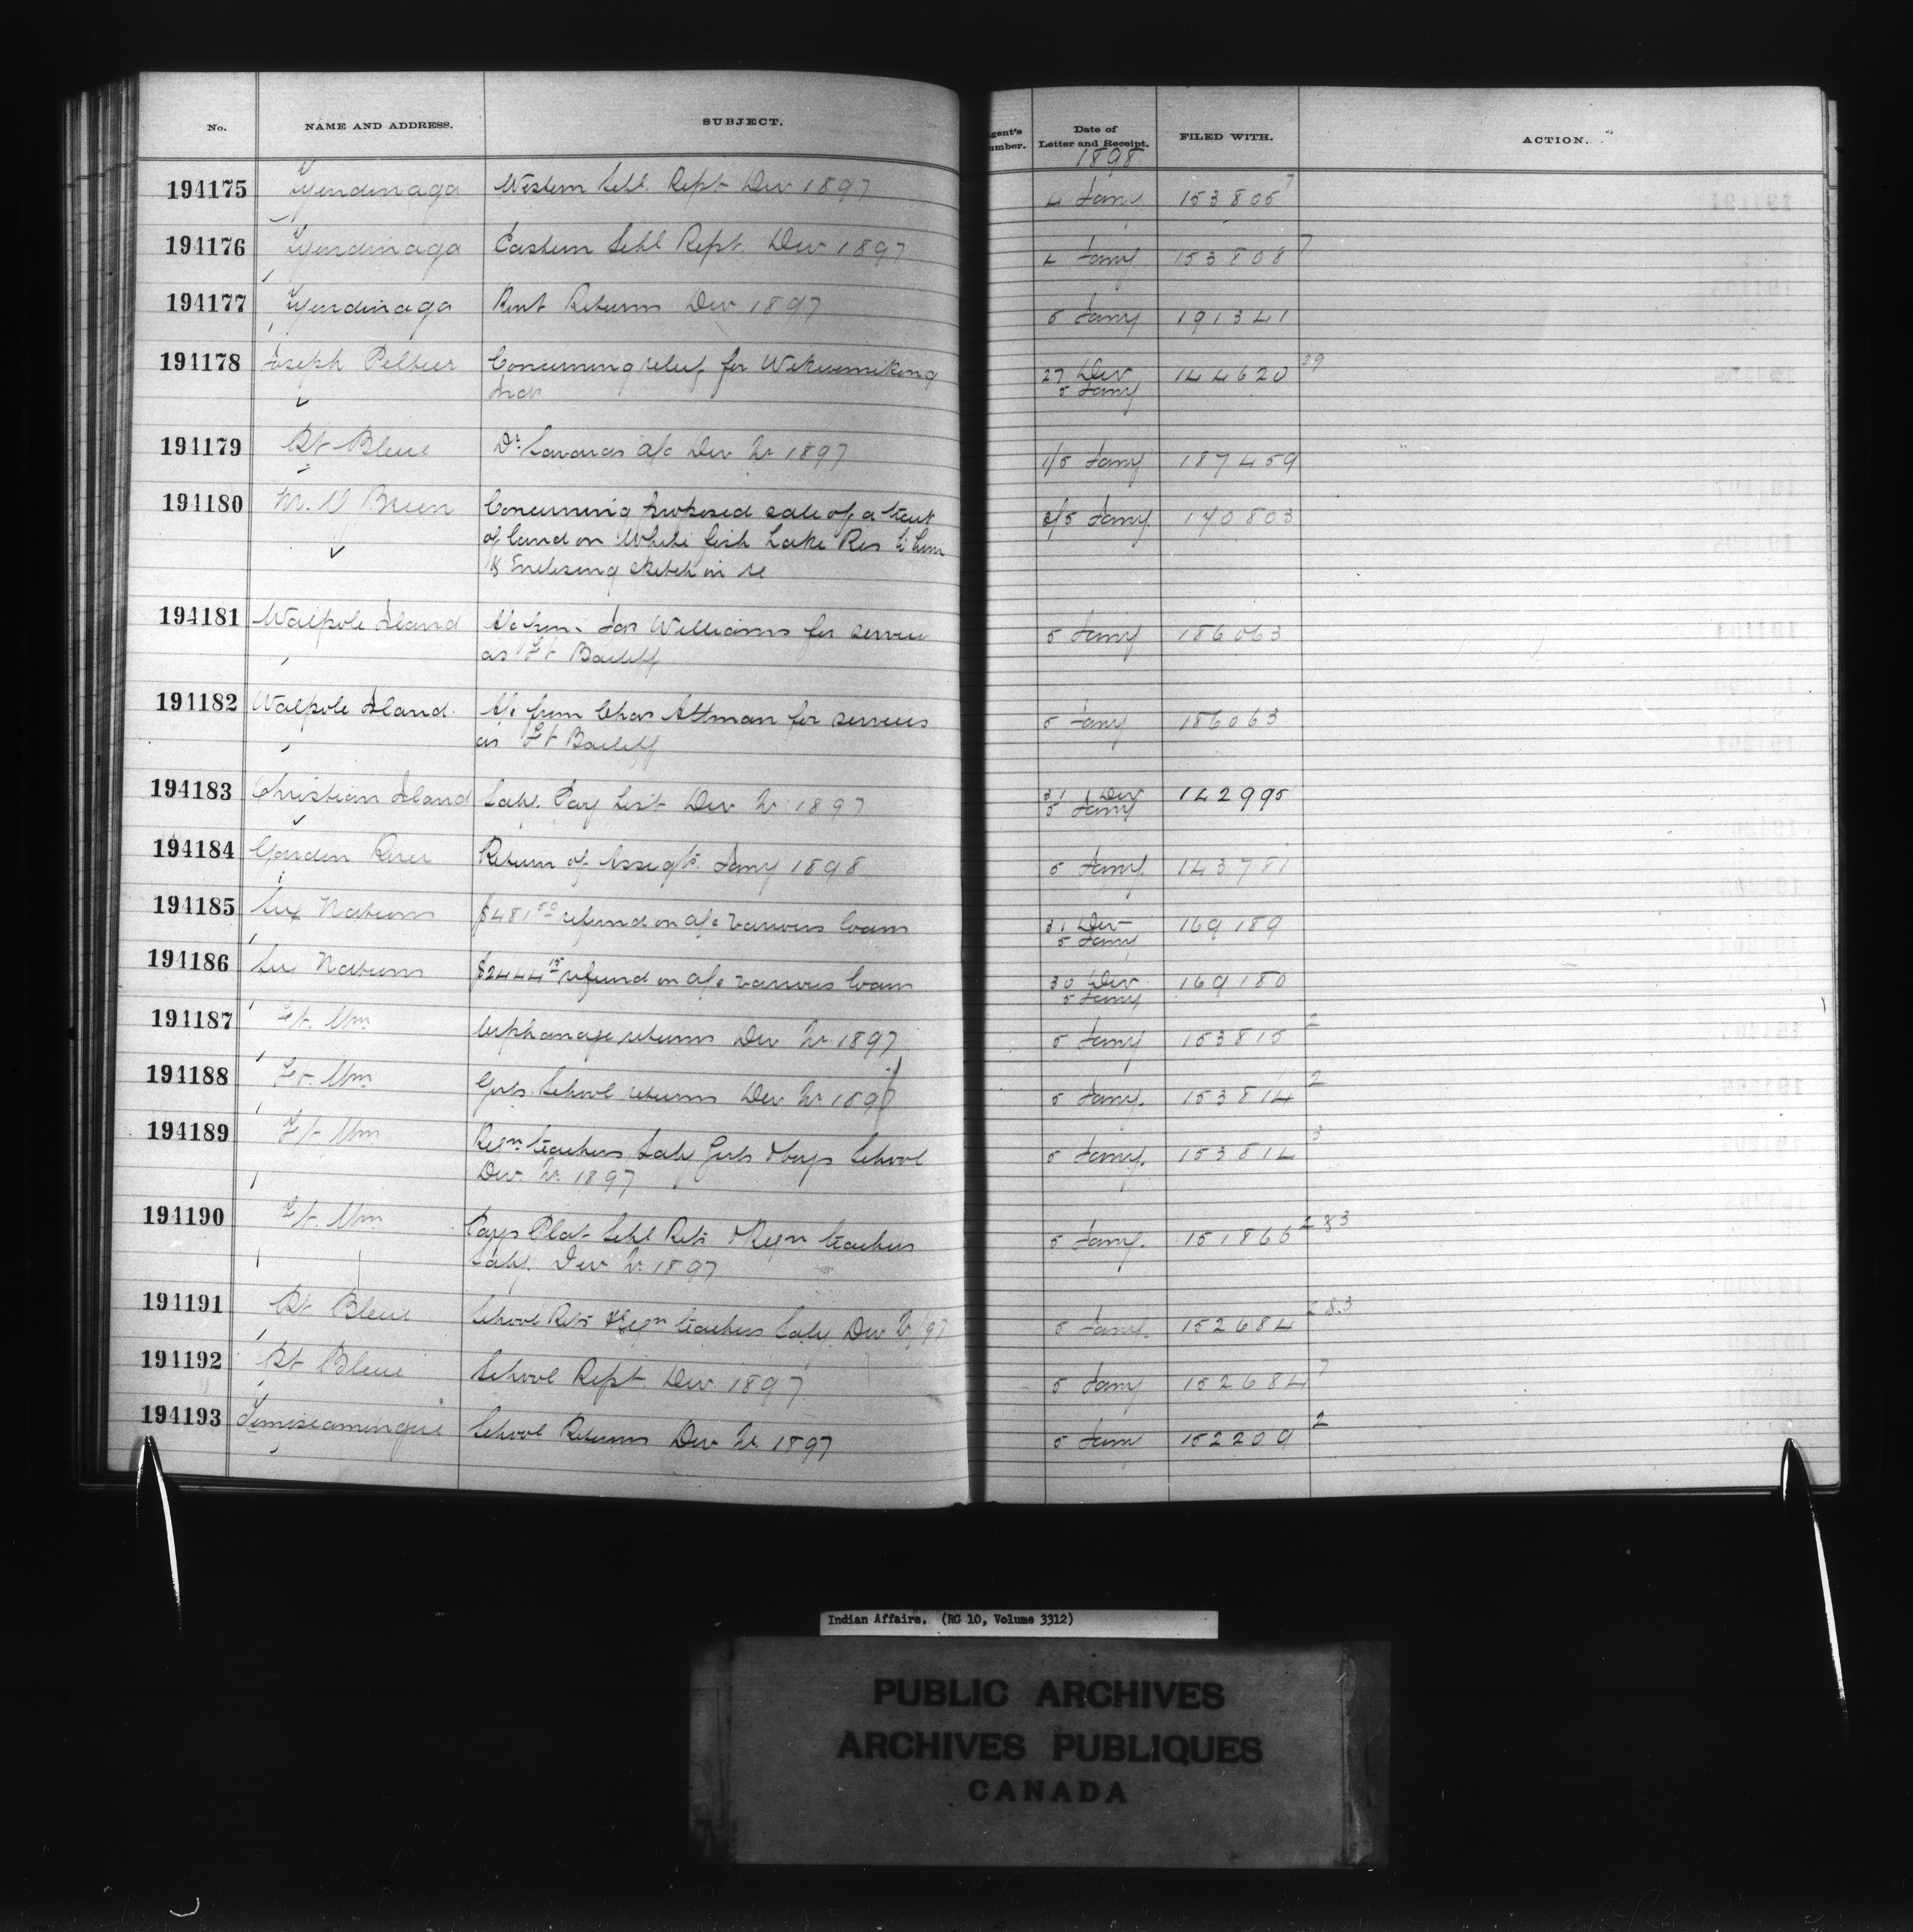 No. NAME AND ADDRESS. SUBJECT. Agent's Number. Date of Letter and Receipt. FILED WITH. ACTION.
1898
194175 Tyendinaga Western Schl. Rept Dec 1897 4 Jany 153805 7
194176 Tyendinaga Eastern Schl Rept. Dec 1897 4 Jany 153808 7
194177 Tyendinaga Rent Returns Dec 1897 5 Jany 191341
194178 Joseph Peltier Concerning relief for Wikwemikong 27 Dec 144620 29
Inds 5 Jany
194179 Pt Bleue Dr. Savards a/c Dec Qr 1897 1/5 Jany 187459
194180 Breen Concerning proposed sale of a tract 3/5 Jany 140803
of land on White fish Lake Res to him
& Enclosing sketch in re
194181 Walpole Island A/c from Jas Williams for service 5 Jany 186063
as Ft Bailiff
194182 Walpole Island. A/c from Chas Altman for services 5 Jany 186063
as Ft Bailiff
194183 Christian Island Saly. Pay List Dec Qr 1897 31 Dec 142995
5 Jany
194184 Garden River Return of Jany 1898 5 Jany. 143781
194185 Six Nations $481 50 refund on a/c various loans 31 Dec 169189
5 Jany
194186 Six Nations $2444 15 refund on a/c various loans 30 Dec 169180
5 Jany
194187 Ft. Wm. Orphanage returns Dec Qr 1897 5 Jany 153815 2
194188 Ft. Wm Girls School returns Dec Qr 1897 5 Jany. 153814 2
194189 Ft Wm Reqn teachers Saly Girls & boys School 5 Jany. 153814 3
Dec Qr. 1897
194190 Ft. Wm Pays Plat Schl Rets & Reqn teachers 5 Jany. 151866 2&3
Saly. Dec Qr 1897
194191 Pt Bleue School Rets & Reqn teachers Saly Dec Qr/97 5 Jany. 152684 2&3
194192 Pt Bleue School Rept. Dec. 1897 5 Jany 152684 7
194193 Temiscamingue School Returns Dec Qr. 1897 5 Jany 152209 2
Indian Affairs. (RG 10, Volume 3312)
PUBLIC ARCHIVES
ARCHIVES PUBLIQUES
CANADA